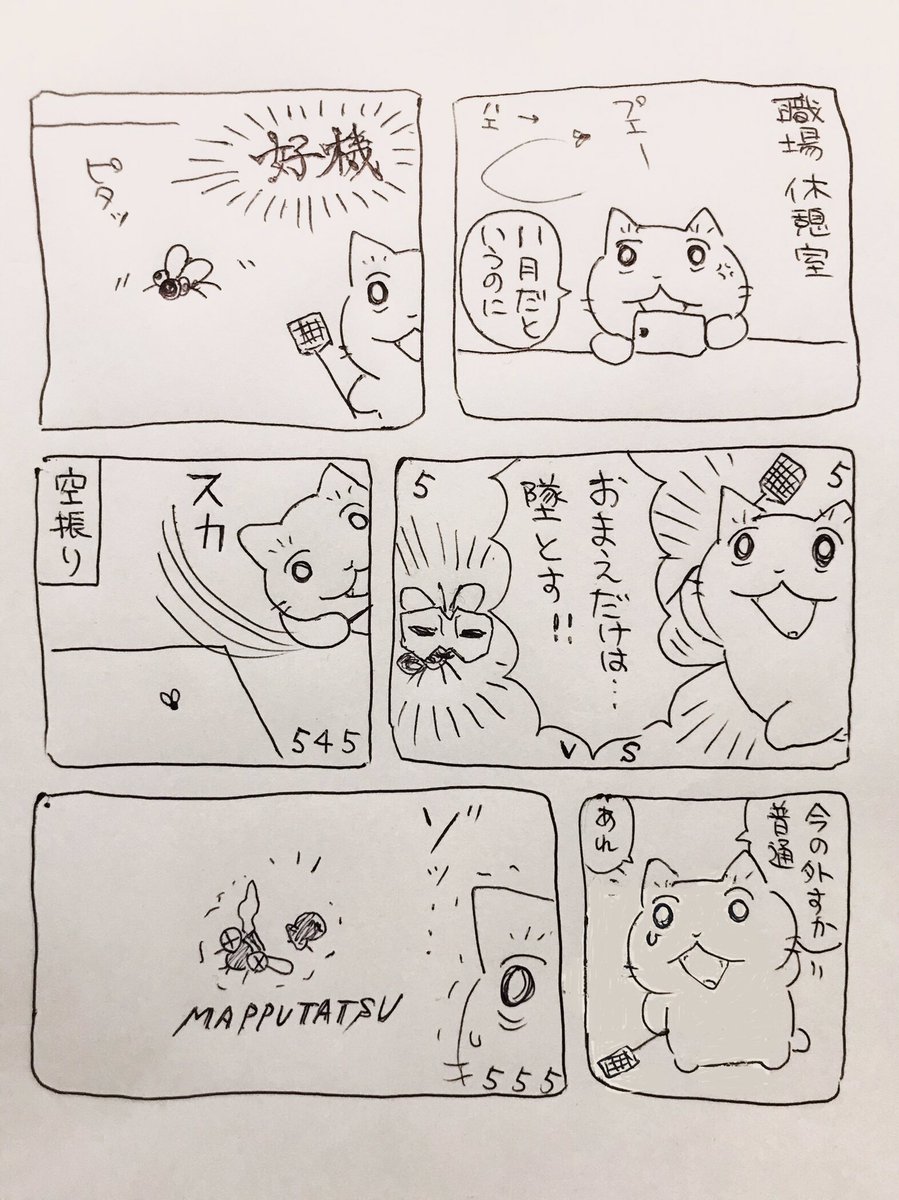 職場 休憩室
プェー
ハエ→
11月だと
いうのに
好機
ピタッ
5
おまえだけは…
墜とす!!
5
VS
スカ
空振り
545
今の外すか
普通
あれ
MAPPUTATSU
555